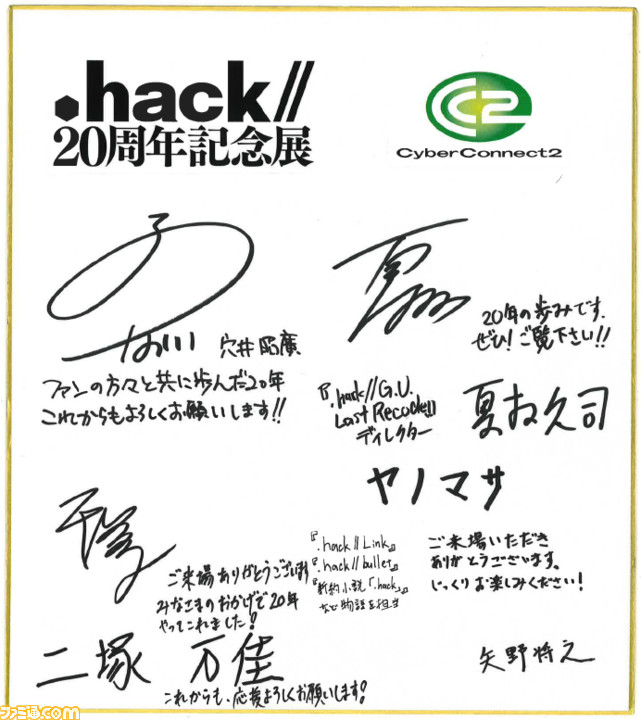 .hack//
20周年記念展
CyberConnect2
穴井昭廣
ファンの方々と共に歩んだ20年
これからもよろしくお願いします!!
20年の歩みです.
ぜひ!ご覧下さい!!
『.hack//G.U.
Last Recode』
ディレクター
夏お久司
ヤノマサ
ご来場ありがとうございます
みなさまのおかげで20年
やってこれました!
『.hack//Link』
『.hack//bullet』
『新約小説「.hack」』
など物語を担当
ご来場いただき
ありがとうございます。
じっくりお楽しみください!
二塚 万佳
これからも、応援よろしくお願いします!
矢野将之
ファミ通.com